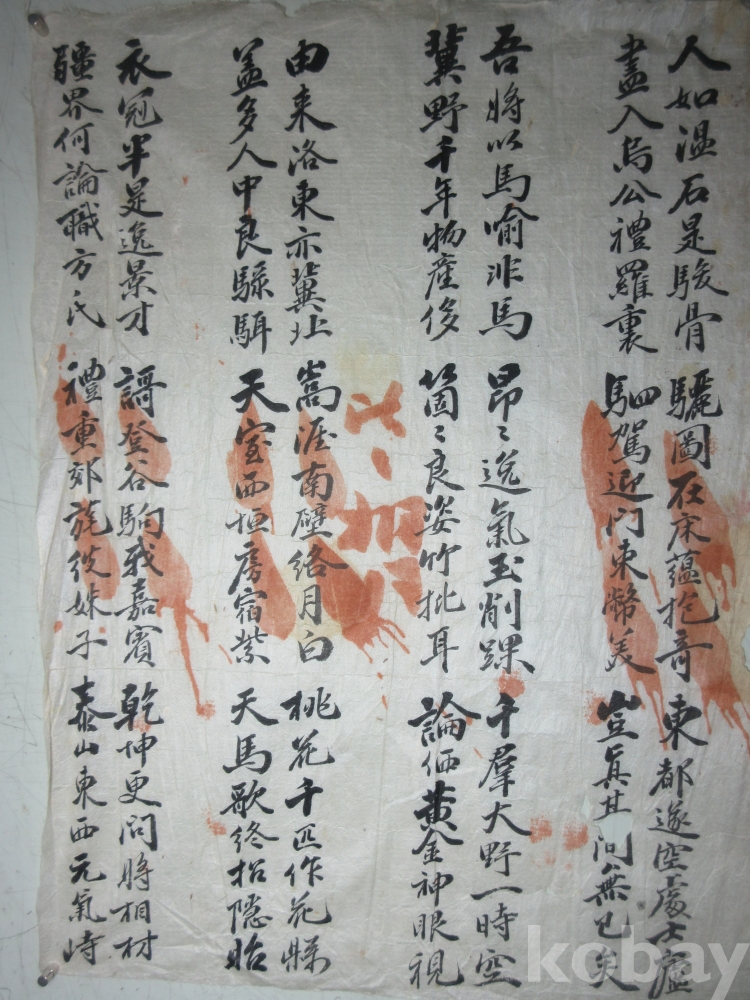 人如溫石是駿骨 驪圖在床蘊抱奇 東都遂空處士廬
盡入烏公禮羅裏 駟駕迎門束幣美 豈眞其間無已矣
吾將以馬喻非馬 昂〻逸氣玉削踝 千羣大野一時空
冀野千年物産侈 箇〻良姿竹批耳 論価黃金神眼視
由來洛東亦冀北 嵩涯南壁絡月白 桃花千匹作花縣
盖多人中良騄駬 天室西恒房宿紫 天馬歌終招隱始
衣冠半是逸景才 謌登谷駒我嘉賓 乾坤更問將相材
疆界何論職方氏 禮重郊旄從姝子 泰山東西元氣峙
kobay